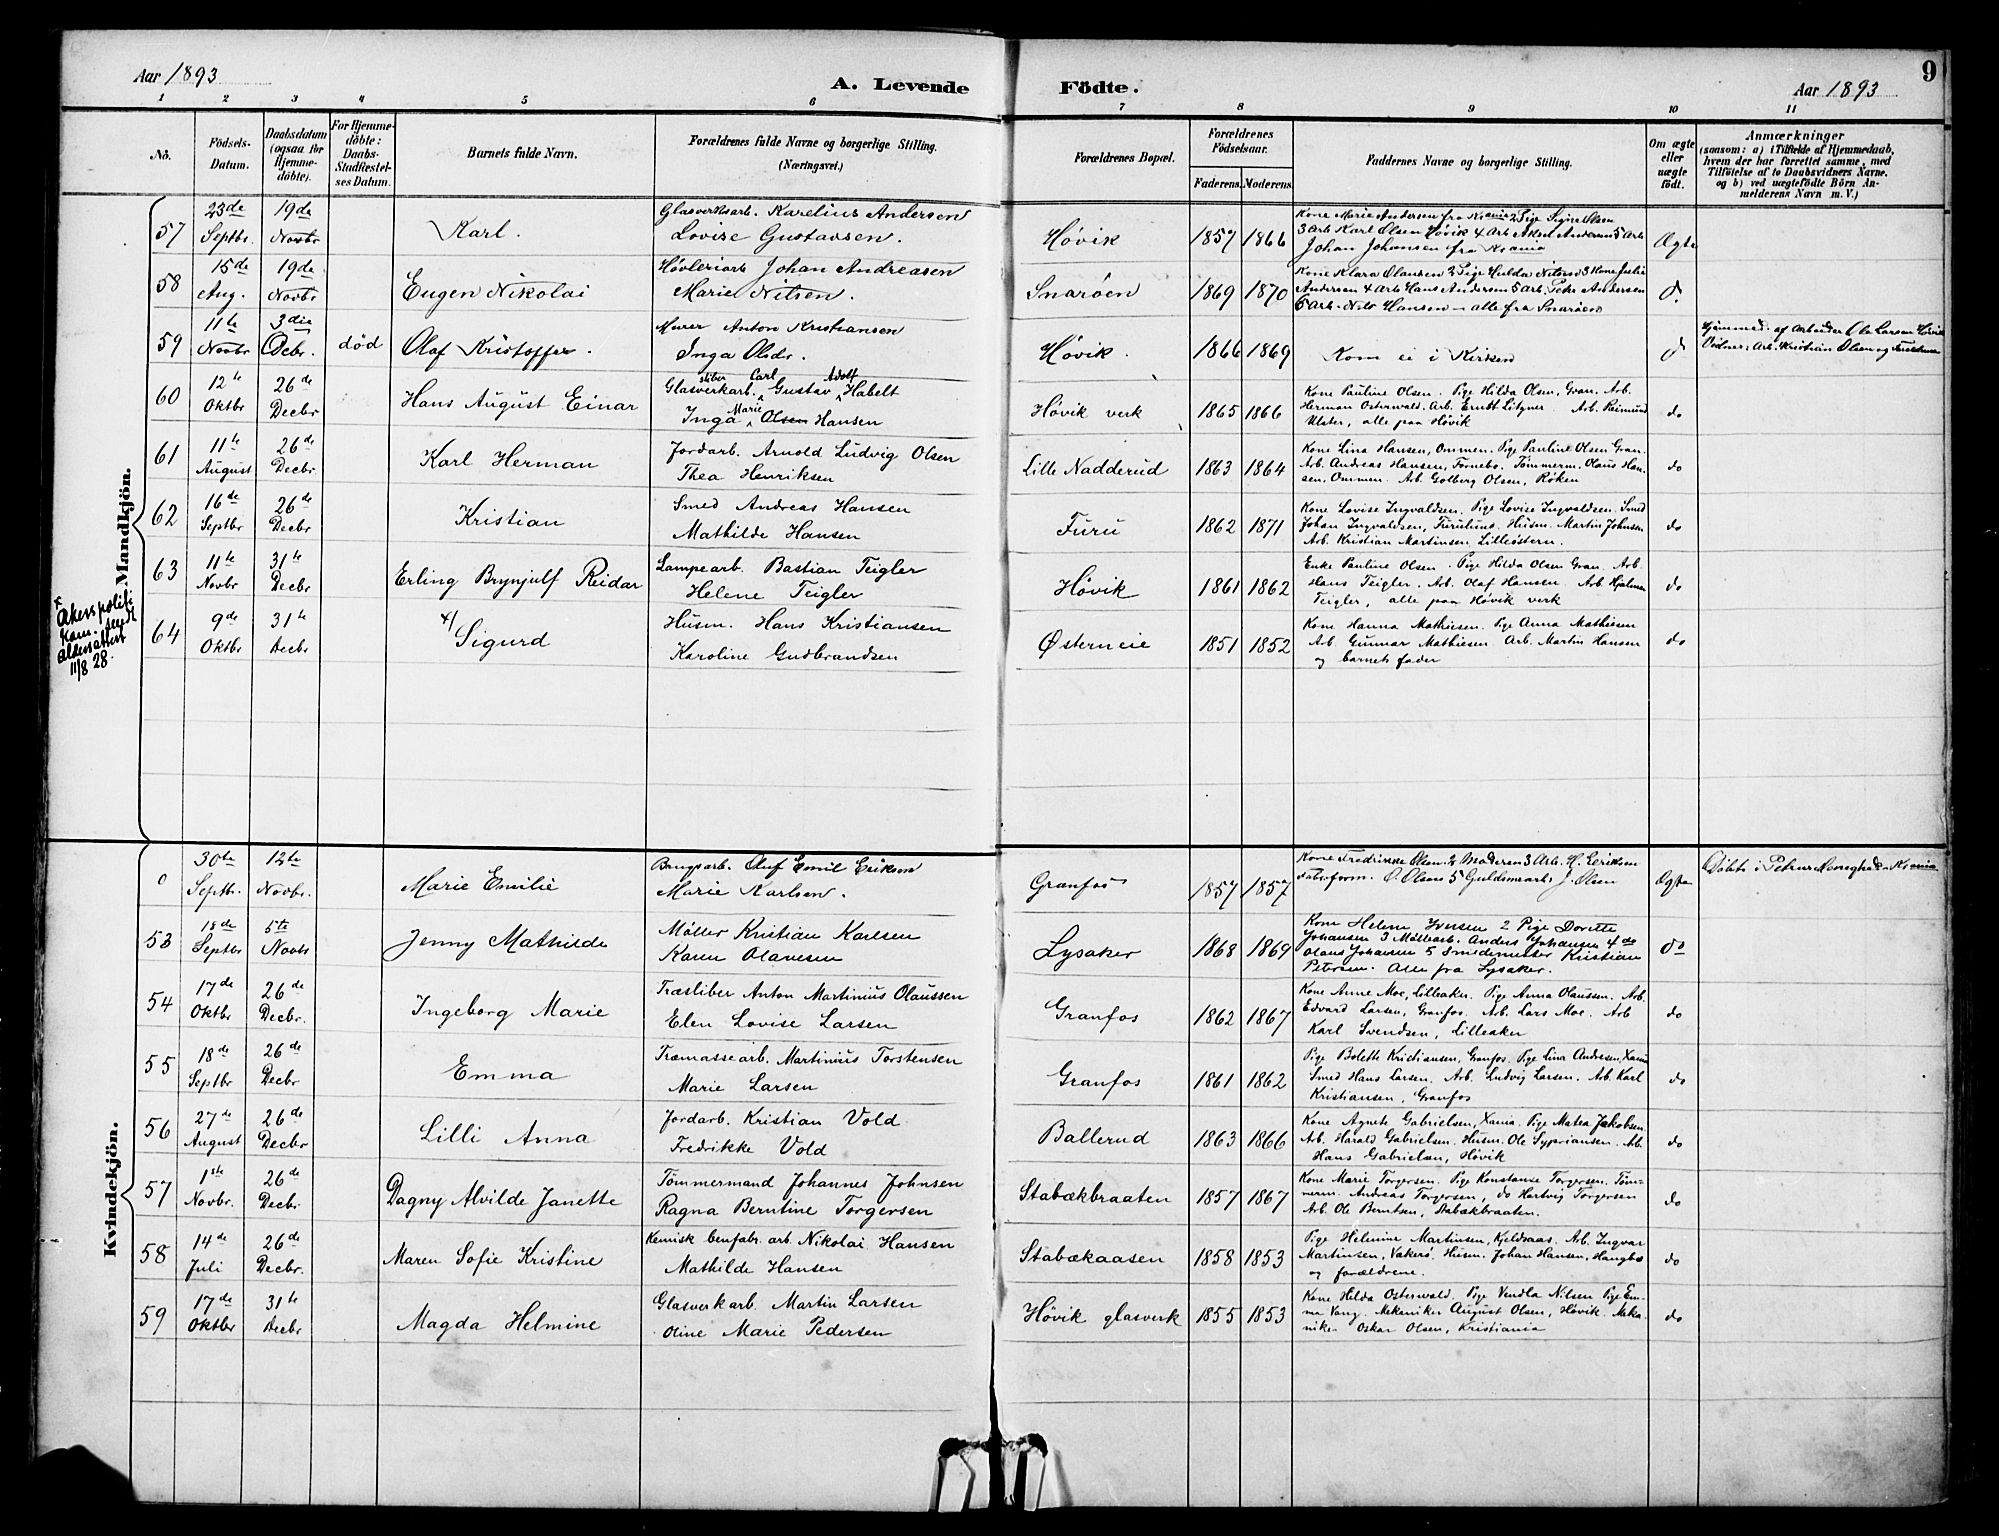 Aar 1893
A. Levende Födte.
Aar 1893
9
1 2 3 4 5 6 7 8 9 10 11
No.
Födsels-Datum.
Daabsdatum (ogsaa for Hjemme-döbte).
For Hjemme-döbte: Daabs-Stadfæstel-ses Datum.
Barnets fulde Navn.
Forældrenes fulde Navne og borgerlige Stilling. (Næringsvei.)
Forældrenes Bopæl.
Forældrenes Födselsaar.
Faderens. Moderens.
Faddernes Navne og borgerlige Stilling.
Om ægte eller uægte födt.
Anmærkninger
(saasom: a) i Tilfælde af Hjemmedaab,
hvem der har forrettet samme, med
Tilföielse af to Daabsvidners Navne.
og b) ved uægtefödte Börn An-
melderens Navn m. V.)
Mandkjön.
57 23de Septbr. 19de Novbr Karl. Glasverksarb. Karelius Andersen
Lovise Gustavsen. Høvik 1857 1866
Kone Marie Andersen fra Kr.ania 2 Pige Signe Olsen
3 Arb Karl Olsen Høvik 4 Arb Aksel Andersen 5 Arb
Johan Johansen fra Krania
Ægte
58 15de Aug. 19de Novbr Eugen Nikolai Høvleriarb Johan Andreasen
Marie Nilsen. Snarøen 1869 1870
Kone Klara Olausen 2 Pige Hulda Nilsen 3 Kone Julie
Andersen 4 Arb Hans Andersen 5 Arb. Petr Andersen
6 Arb. Nils Hansen – alle fra Snarøen
59 11te Novbr 3die Debr. død Olaf Kristoffer. Murer Anton Kristiansen
Inga Olsdr. Høvik. 1866 1869
Kom ei i Kirken
Hjemmed. af Arbeider Ole Larsen Høvik
Vidner: Arb. Kristian Olsen og
60 12te Oktbr 26de Decbr Hans August Einar Glasverkarb. sliber Carl Gustav Adolf Habelt
Inga Marie Olsen Hansen Høvik verk 1865 1866
Kone Pauline Olsen. Pige Hilda Olsen, Gran. Arb.
Herman Osterwald. Arb. Ernst Litzner. Arb. Reimund
Ulster, alle paa Høvik
do
61 11te August 26de Decbr. Karl Herman Jordarb. Arnold Ludvig Olsen
Thea Henriksen Lille Nadderud 1863 1864
Kone Lina Hansen, Ommen. Pige Pauline Olsen Gran.
Arb. Andreas Hansen, Fornebo. Tømmerm. Olaus Han-
sen, Ommen. Arb. Golberg Olsen, Røken
do
62 16de Septbr 26de Decbr Kristian Smed Andreas Hansen
Mathilde Hansen Furu 1862 1871
Kone Lovise Ingvaldsen. Pige Lovise Ingvaldsen. Smed
Johan Ingvaldsen, Furulund. Husm. Martin Johnsen
Arb. Kristian Martinsen, Lilleøstern.
do
63 11te Novbr 31te Decbr Erling Brynjulf Reidar Lampearb. Bastian Teigler
Helene Teigler Høvik 1861 1862
Enke Pauline Olsen. Pige Hilda Olsen Gran. Arb.
Hans Teigler. Arb. Olaf Hansen. Arb Hjalmar
Teigler, alle paa Høvik verk
do
x Akers politi
kam. sendt
aldersattest
11/8 28.
64 9de Oktbr 31te Decbr x/ Sigurd Husm. Hans Kristiansen
Karoline Gudbrandsen Østerneie 1851 1852
Kone Hanna Mathiesen. Pige Anna Mathiesen
Arb. Gunnar Mathiesen Arb. Martin Hansen
og barnets fader
do
Kvindekjön.
0 30te Septbr. 12te Novbr. Marie Emilie Brugsarb. Oluf Emil Eriksen
Marie Karlsen. Granfos 1857 1857
Kone Fredrikke Olsen. 2 Moderen 3 Arb. H. Eriksen
Fabr.form. O. Olsen 5 Guldsmearb. J. Olsen
Ægte
Døbt i Petrus Menighed Krania
53 18de Septbr 5te Novbr Jenny Mathilde Møller Kristian Karlsen
Karen Olavesen Lysaker 1868 1869
Kone Helene Iversen 2 Pige Dorette
Johansen 3 Møllearb. Anders Johansen 4 do
Olaus Johansen 5 Smedemester Kristian
Petersen. Alle fra Lysaker.
do
54 17de Oktbr 26de Decbr. Ingeborg Marie Træsliber Anton Martinius Olaussen
Elen Lovise Larsen Granfos 1862 1867
Kone Anne Moe, Lilleaker. Pige Anna Olaussen. Arb.
Edvard Larsen, Granfos. Arb. Lars Moe. Arb
Karl Svendsen, Lilleaker
do
55 18de Septbr 26de Decbr Emma Træmassearb. Martinius Torstensen
Marie Larsen Granfos 1861 1862
Pige Bolette Kristiansen, Granfos. Pige Lina Andresen, Xania
Smed Hans Larsen. Arb. Ludvig Larsen. Arb. Karl
Kristiansen, Granfos
do
56 27de August 26de Decbr Lilli Anna Jordarb. Kristian Vold
Fredrikke Vold Ballerud 1863 1866
Kone Agnete Gabrielsen, Xania. Pige Matea Jakobsen.
Arb. Harald Gabrielsen. Husm. Ole Sypriansen. Arb.
Hans Gabrielsen, Høvik
do
57 1ste Novbr. 26de Decbr Dagny Alvilde Janette Tömmermand Johannes Johnsen
Ragna Berntine Torgersen Stabækbraaten 1857 1867
Kone Marie Torgersen. Pige Konstanse Torgersen. Töm-
merm. Andreas Torgersen, do Hartvig Torgersen
Arb. Ole Berntsen, Stabækbraaten.
do
58 14de Juli 26de Decbr. Maren Sofie Kristine Kemisk benfabr. arb Nikolai Hansen
Mathilde Hansen Stabækaasen 1858 1853
Pige Helenine Martinsen, Kjeldsaas. Arb. Ingvar
Martinsen, Vækerö. Husm. Johan Hansen, Haugbo
og forældrene.
do
59 17de Oktbr 31te Decbr Magda Helmine Glasverkarb. Martin Larsen
Oline Marie Pedersen Høvik glasverk 1855 1853
Kone Hilda Osterwald. Pige Vendla Nilsen Pige Em-
ma Vang. Mekaniker August Olsen, Høvik. Meka-
niker Oskar Olsen, Kristiania
do